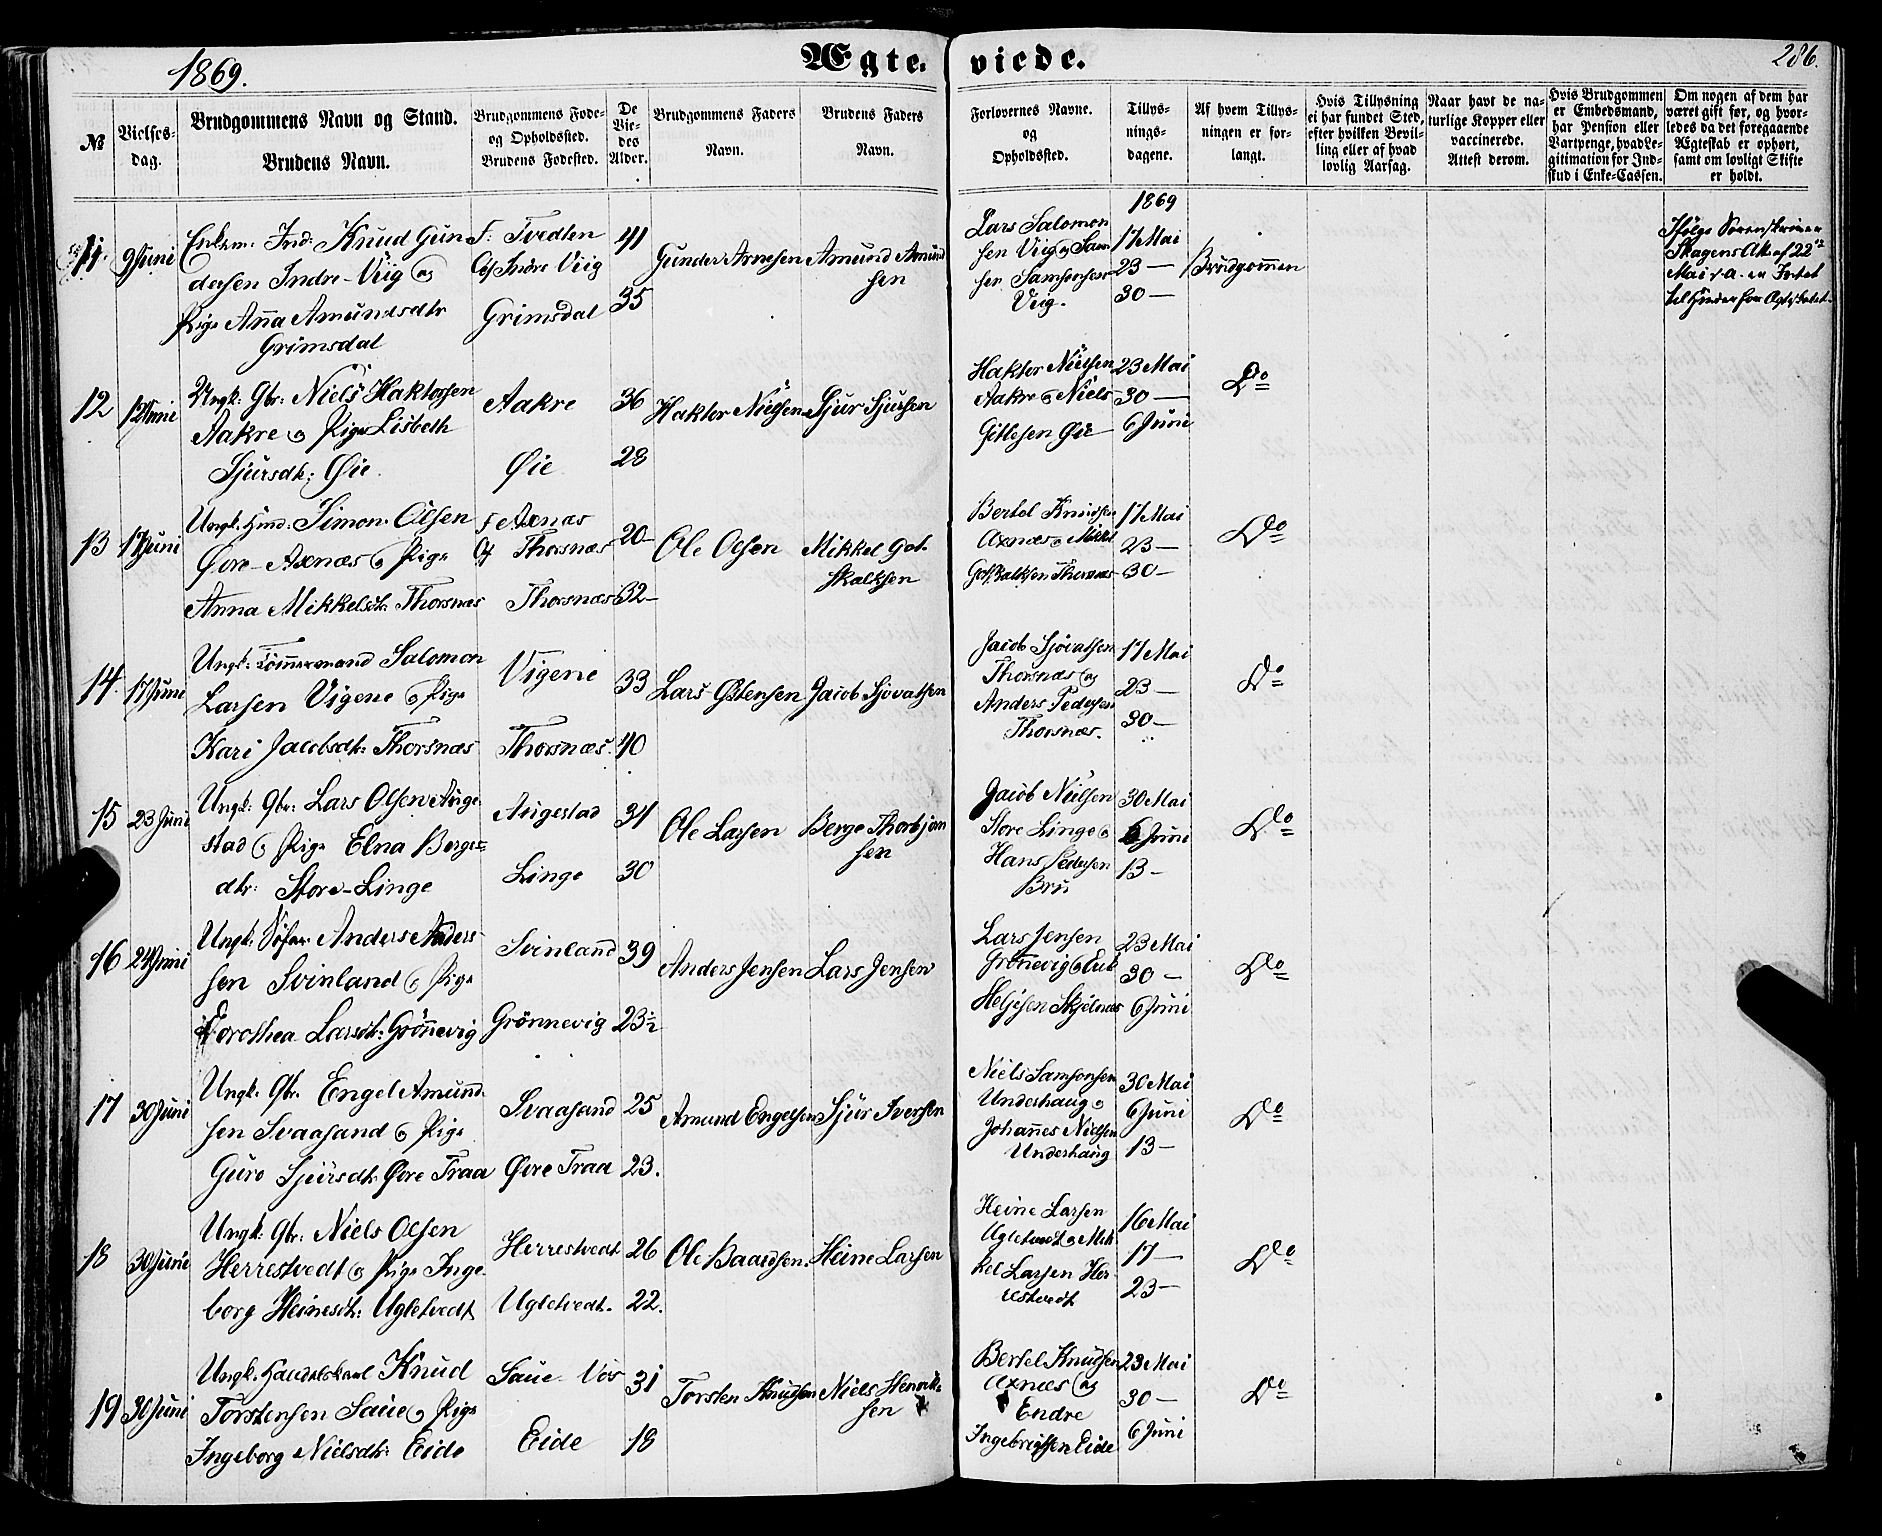 1869.
Ægte-
viede.
286.
№
Vielses-
dag.
Brudgommens Navn og Stand.
Brudens Navn.
Brudgommens Føde-
og Opholdssted.
Brudens Fødested.
De
Vie-
des
Alder.
Brudgommens Faders
Navn.
Brudens Faders
Navn.
Forlovernes Navne.
og
Opholdssted.
Tillys-
nings-
dagene.
Af hvem Tillys-
ningen er for-
langt.
Hvis Tillysning
ei har fundet Sted,
efter hvilken Bevil-
ling eller af hvad
lovlig Aarsag.
Naar havt de na-
turlige Kopper eller
vaccinerede.
Attest derom.
Hvis Brudgommen
er Embedsmand,
har Pension eller
Vartpenge, hvad Le-
gitimation for Ind-
skud i Enke-Cassen.
Om nogen af dem har
været gift før, og hvor-
ledes da det foregaaende
Ægteskab er ophørt,
samt om lovligt Skifte
er holdt.
11.
9 Juni
Enkem. Ind: Knud Gun
dersen Indre-Viig og
Pige Anna Amundsdtr
Grimsdal
F: Tvedten
Of Indre Viig
Grimsdal
41
35
Gunder Arnesen
Amund Amund
sen
Lars Salomon
sen Viig og Sam
sen Samsonsen
Viig.
1869
17 Mai
23 —
30 —
Brudgommen
Ifølge Sorenskriver
Skagens Att. af 22
Mai d. a. er Intet
til Hinder for Ægteskabet.
12
12 Juni
Ungk: Gbr: Niels Haktorsen
Aakre og Pige Lisbeth
Sjursdt: Øie
Aakre
Øie
36
28
Haktor Nielsen
Sjur Sjursen
Haktor Nielsen
Aakre og Niels
Gitlesen Øie
23 Mai
30 —
6 Juni
Do
13
17 Juni
Ungk. Huusd. Simon Olsen
Øvre-Axnæs og Pige
Anna Mikkelsdt: Thorsnæs
F Axnæs
Of Thorsnæs
Thorsnæs
20
32
Ole Olsen
Mikkel Got
skalksen
Bertel Knudsen
Axnæs og Mikkel
Gotskalksen Thorsnæs
17 Mai
23 —
30 —
Do
14.
17 Juni
Ungk: Tømmermand Salomon
Larsen Vigene og Pige
Kari Jacobsdt: Thorsnæs
Vigene
Thorsnæs.
33
40
Lars Østensen
Jacob Sjovatsen
Jacob Sjovatsen
Thorsnæs og
Anders Pedersen
Thorsnæs.
17 Mai
23 —
30 —
Do
15
23 Juni
Ungk: Gbr: Lars Olsen Auge
stad og Pige Elna Berges-
dtr: Store-Linge
Augestad
Linge
34
30
Ole Larsen
Berge Thorbjørn
sen
Jacob Nielsen
Store Linge og
Hans Pedersen
Bru
30 Mai
6 Juni
13 —
Do
16
24 Juni
Ungk: Anders Anders-
sen Svinland og Pige
Dorothea Larsdt: Grønnevig
Svinland
Grønnevig
39
23½
Anders Jensen
Lars Jensen
Lars Jensen
Grønevig og Erik
Heljesen Skjelnæs
23 Mai
30 —
6 Juni
Do
17
30 Juni
Ungk. Gbr. Engel Amund
sen Svaasand og Pige
Guro Sjursdt: Øvre Traa
Svaasand
Øvre Traa
25
23.
Amund Engelsen
Sjur Iversen
Niels Samsonsen
Underhaug og
Johannes Nielsen
Underhaug
30 Mai
6 Juni
13 —
Do
18
30 Juni
Ungk: Gbr: Niels Olsen
Herrestvedt og Pige Inge-
borg Heinesdt: Ugletvedt
Herrestvedt
Ugletvedt.
26
22.
Ole Baardsen.
Heine Larsen
Heine Larsen
Ugletvedt og Mik
kel Larsen Her
restvedt
16 Mai
17 —
23 —
Do
19
30 Juni
Ungk. Handelskarl Knud
Torstensen Saue og Pige
Ingeborg Nielsdt: Eide
Saue Vos
Eide
31
18
Torsten Knudsen
Niels Henrik-
sen
Bertel Knudsen
Axnæs og
Endre
Ingebrigtsen Eide
23 Mai
30 —
6 Juni
Do